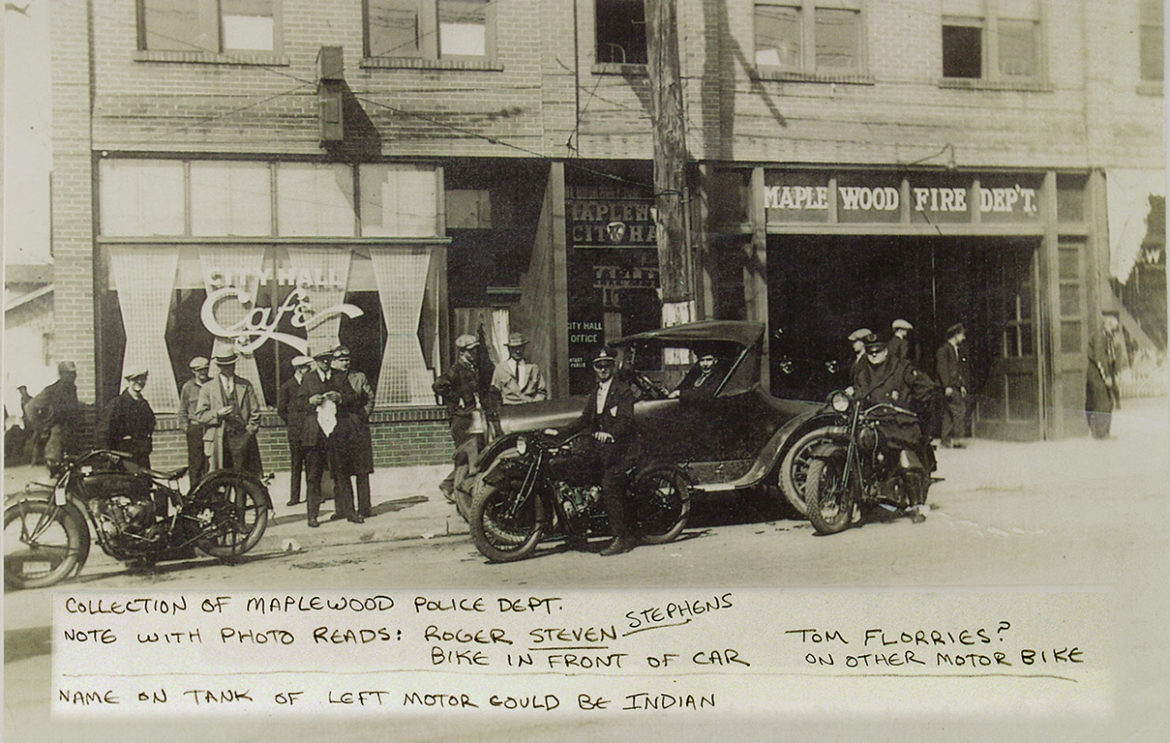 MAPLE WOOD FIRE DEP'T.
CITY HALL
Café
CITY HALL
OFFICE
COLLECTION OF MAPLEWOOD POLICE DEPT.
NOTE WITH PHOTO READS: ROGER STEVEN STEPHENS TOM FLORRIES?
BIKE IN FRONT OF CAR ON OTHER MOTOR BIKE
NAME ON TANK OF LEFT MOTOR COULD BE INDIAN